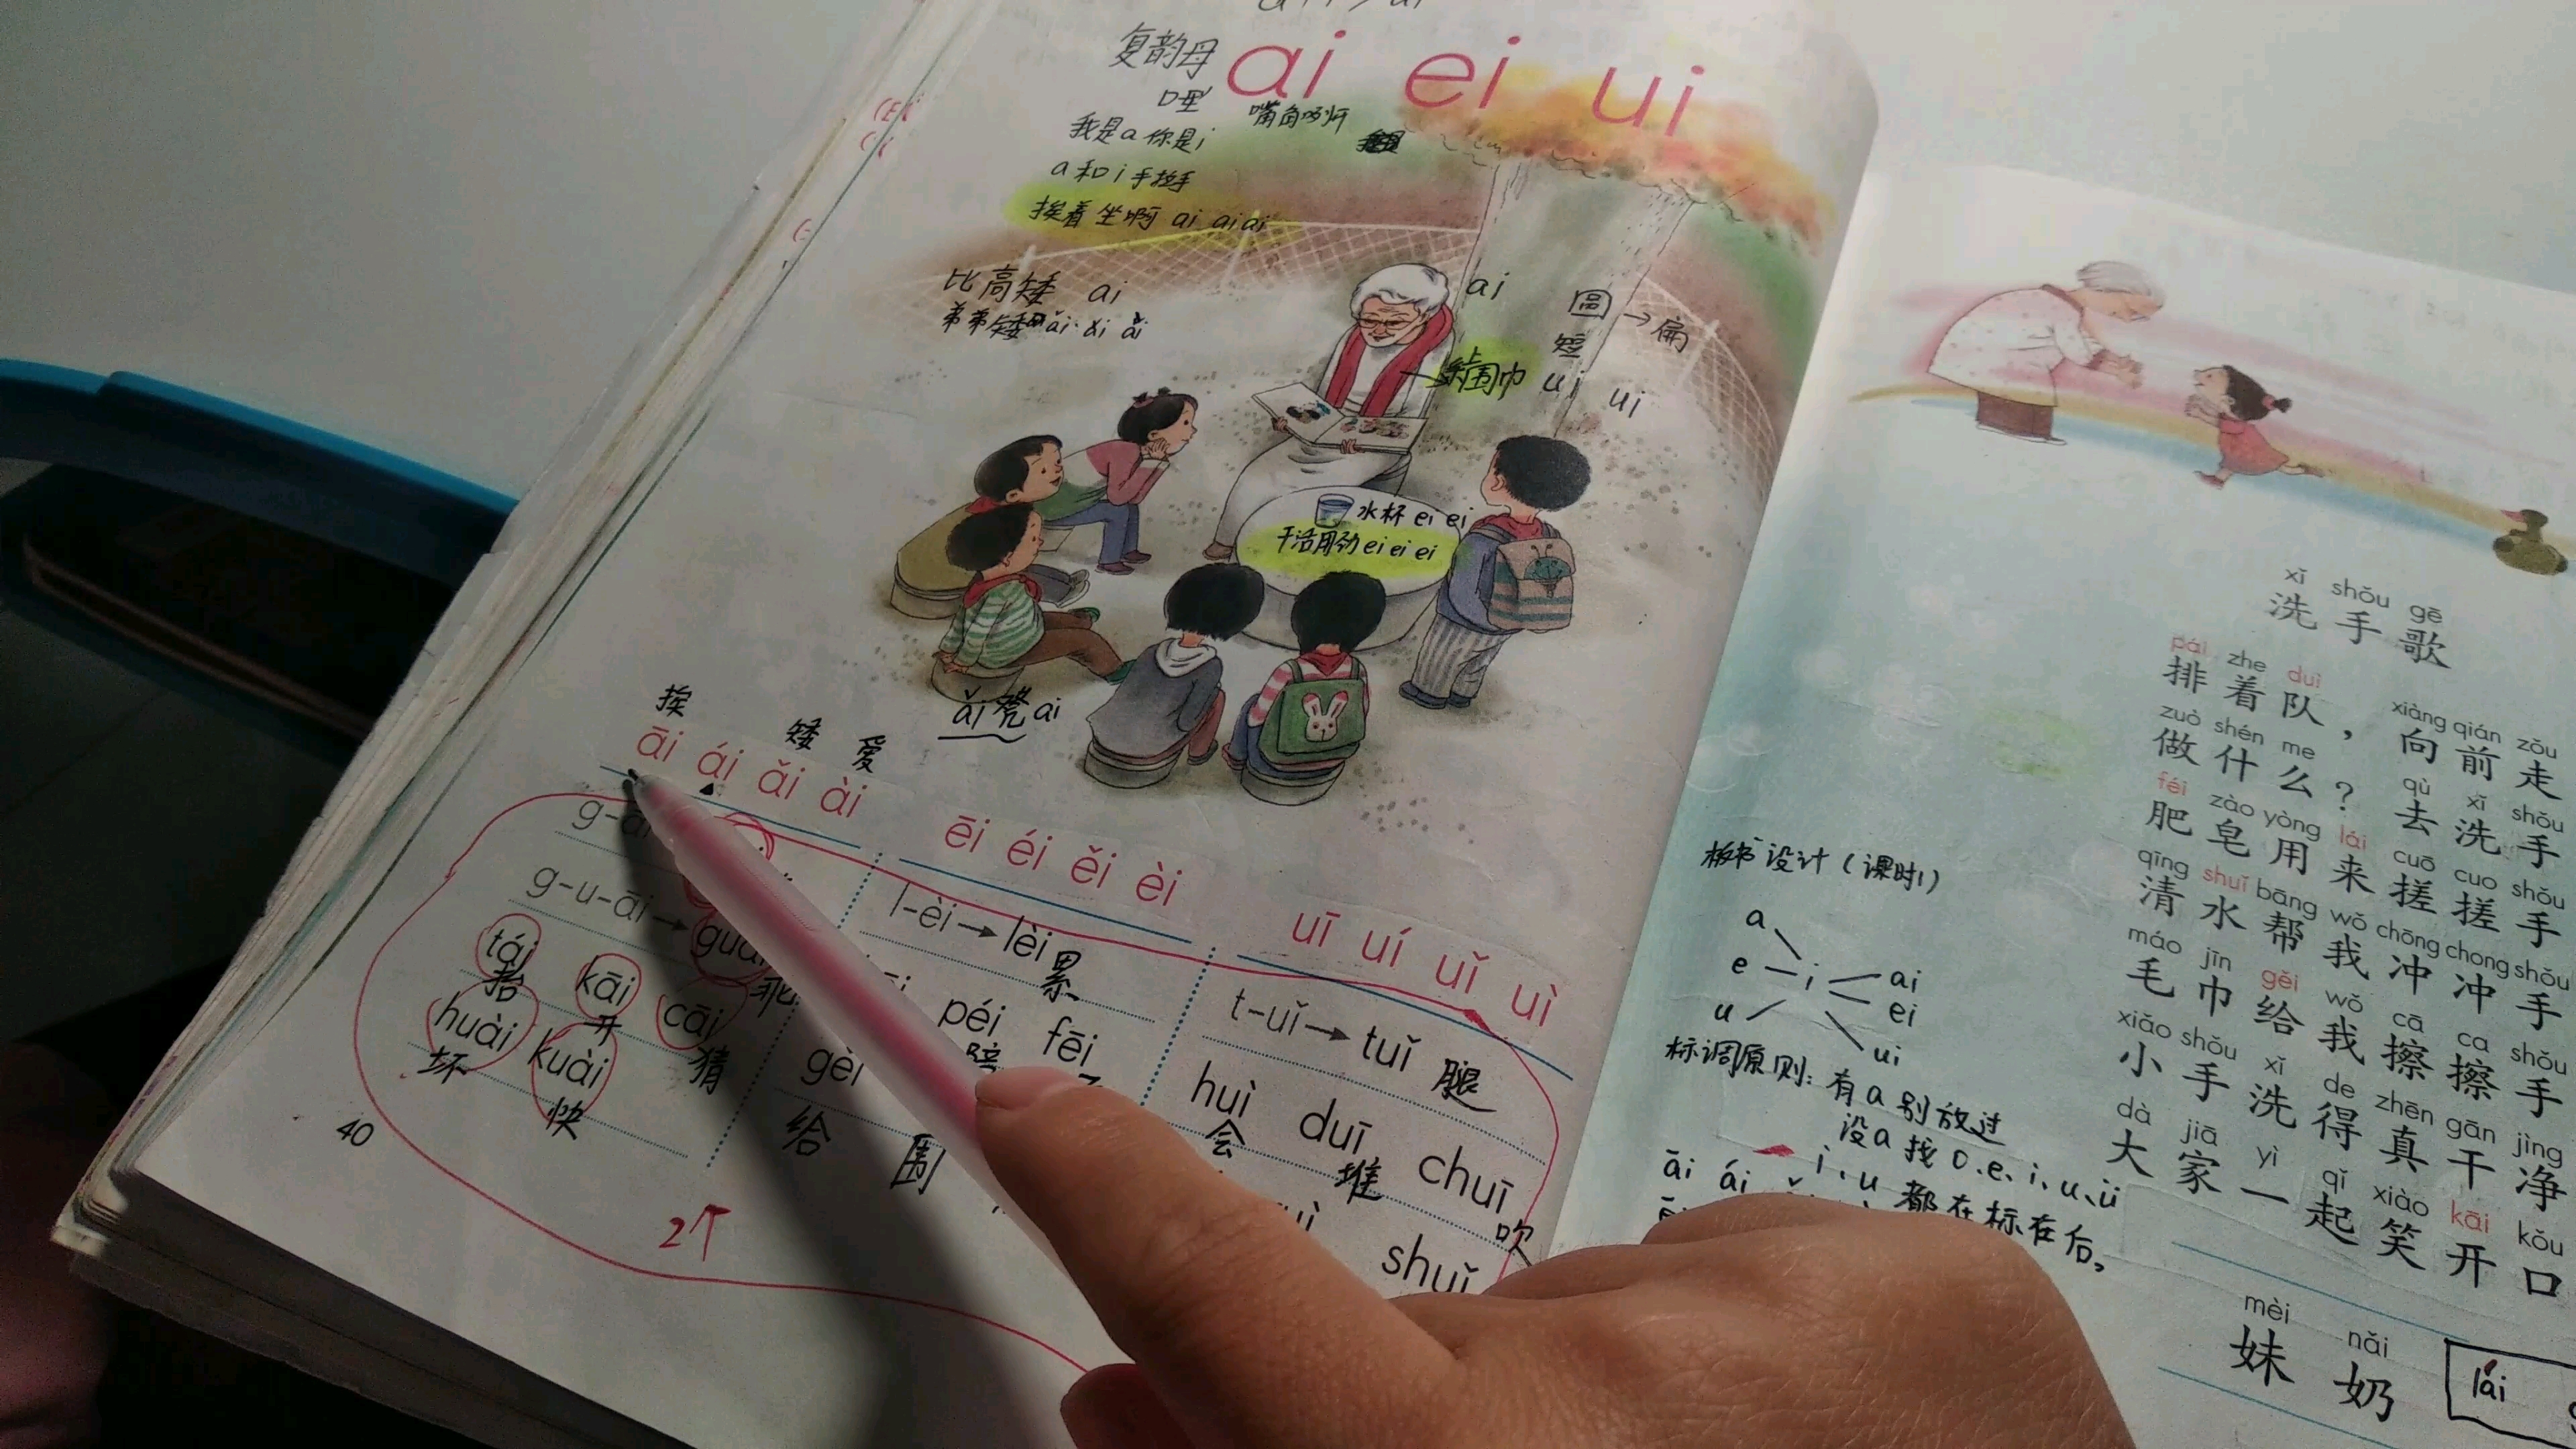 复韵母
ai ei ui
口型 嘴角咧开
我是a你是i
a和i手拉手
挨着坐啊 ai ai ai
比高矮 ai
弟弟矮 ǎi ǎi ǎi
ai
圆→扁
短
围巾 ui ui
水杯 ei ei
干活用劲 ei ei ei
ǎi凳ai
挨 矮 爱
āi ái ǎi ài
ēi éi ěi èi
uī uí uǐ uì
g-u-āi→
l-èi→lèi 累
t-uǐ→tuǐ 腿
tái kāi cāi
抬 开 猜 乖
huài kuài
坏 快
péi fēi
gěi
给 围
huì duī chuī
会 堆 吹
shuǐ
40
2个
xǐ shǒu gē
洗手歌
pái zhe duì xiàng qián zǒu
排着队，向前走
zuò shén me qù xǐ shǒu
做什么？去洗手
féi zào yòng lái cuō cuo shǒu
肥皂用来搓搓手
qīng shuǐ bāng wǒ chōng chong shǒu
清水帮我冲冲手
máo jīn gěi wǒ cā ca shǒu
毛巾给我擦擦手
xiǎo shǒu xǐ de zhēn gān jìng
小手洗得真干净
dà jiā yì qǐ xiào kāi kǒu
大家一起笑开口
mèi nǎi
妹 奶
lái
板书设计（课时1）
a
e i ai
u ei
ui
标调原则：有a别放过
没a找o、e、i、u、ü
i、u都在标在后，
āi ái